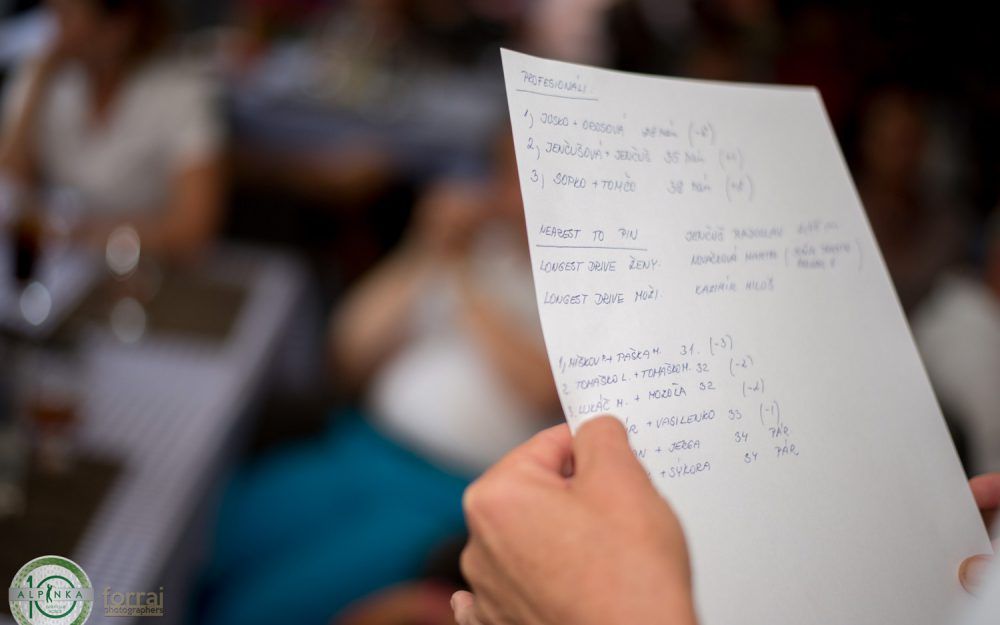 PROFESIONÁLI
1) JOSKO + OROSOVÁ
2) JENČUŠOVÁ + JENČUŠ 35
3) SOPKO + TOMČO 38
NEAREST TO PIN JENČUŠ RADOSLAV
LONGEST DRIVE ŽENY.
LONGEST DRIVE MUŽI. KAZIMÍR MILOŠ
1) MIŠKOV + PAŠKA M. 31. (-3)
2 TOMAŠKO L. + TOMAŠKO M. 32 (-2)
3, LUKÁČ M. + 32 (-2)
+ VASILENKO 33 (-1)
+ JERGA 34 PÁR
+ SÝKORA 34 PÁR
ALPINKA
10
forrai
photographers